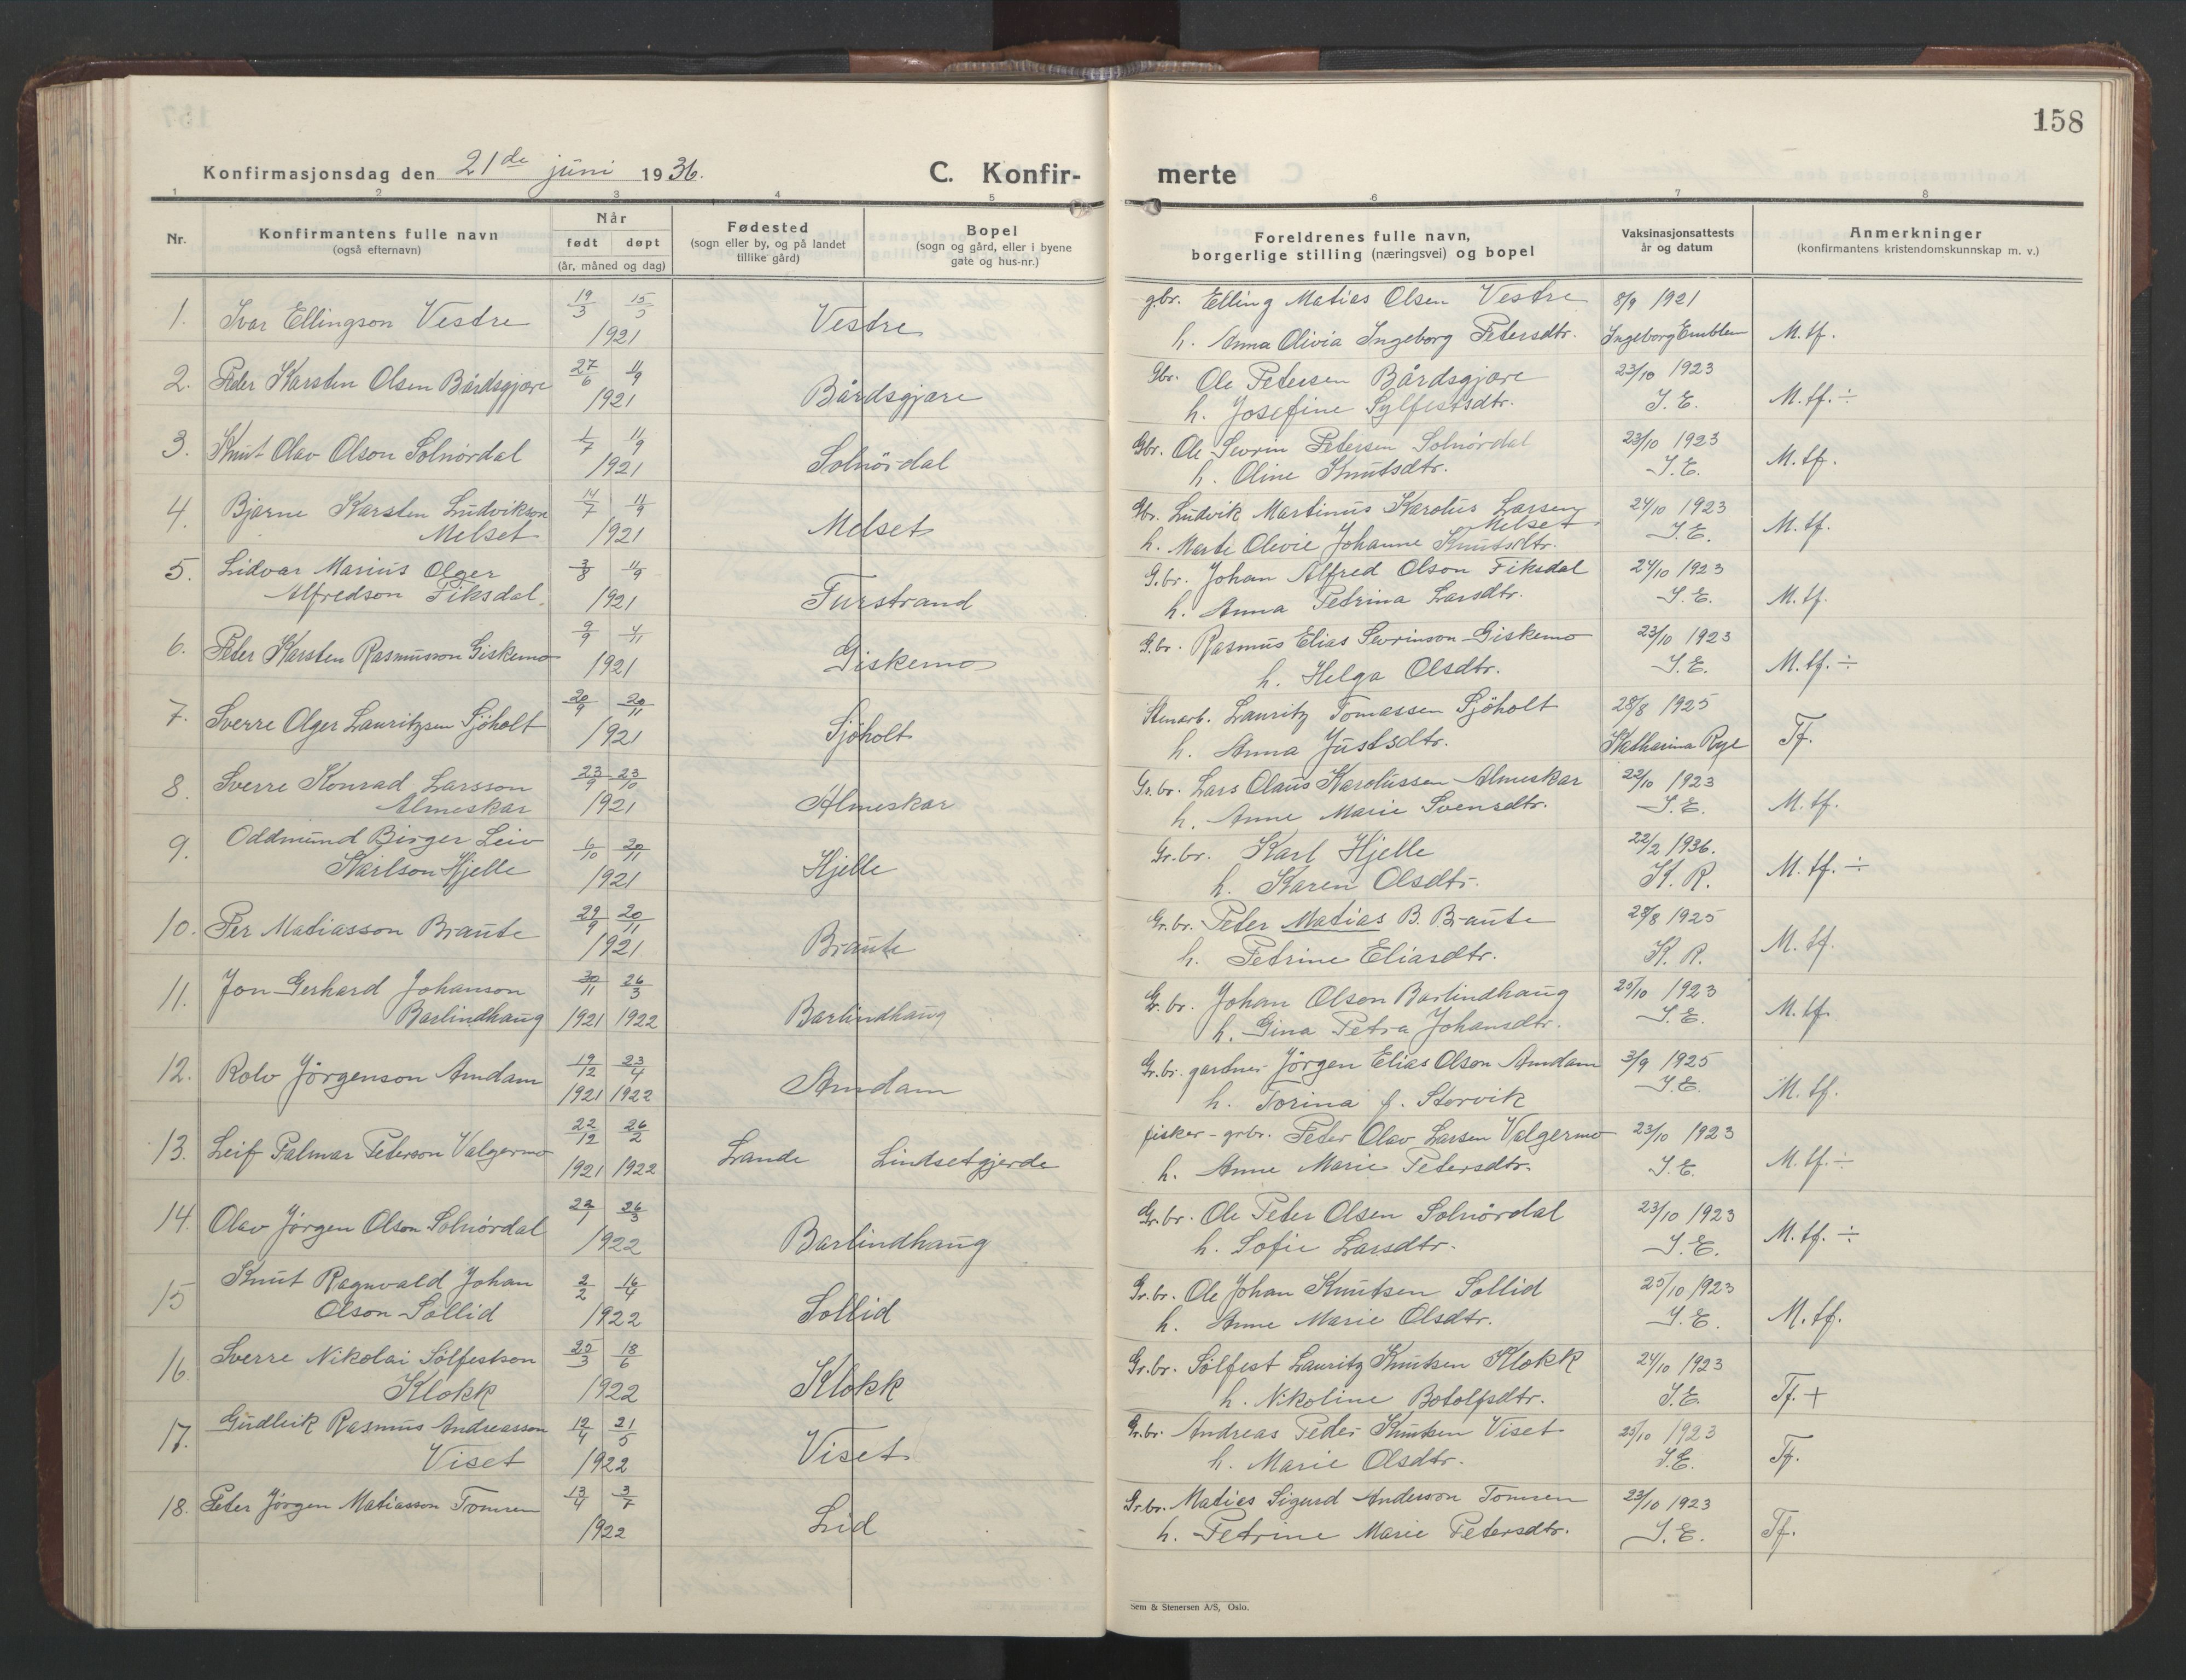 158
Konfirmasjonsdag den 21de juni 1936. C. Konfir- merte
1 2 3 4 5 6 7 8
Nr. Konfirmantens fulle navn (også efternavn) Når født døpt (år, måned og dag) Fødested (sogn eller by, og på landet tillike gård) Bopel (sogn og gård, eller i byene gate og hus-nr.) Foreldrenes fulle navn, borgerlige stilling (næringsvei) og bopel Vaksinasjonsattests år og datum Anmerkninger (konfirmantens kristendomskunnskap m. v.)
1. Ivar Ellingson Vestre 19/3 15/5 1921 Vestre gbr. Elling Matias Olsen Vestre 8/9 1921
h. Anna Olivia Ingeborg Petersdtr. Ingeborg Emblem M.tf.
2. Peder Karsten Olsen Bårdsgjære 27/6 11/9 1921 Bårdsgjære Gbr. Ole Petersen Bårdsgjære 23/10 1923
h. Josefine Sylfestsdtr. I. E. M.tf. ÷
3. Knut Olav Olson Solnørdal 1/7 11/9 1921 Solnørdal Gbr. Ole Sevrin Petersen Solnørdal 23/10 1923
h. Oline Knutsdtr. I. E. M.tf.
4. Bjarne Karsten Ludvikson 14/7 11/9 Gbr. Ludvik Martinus Karolus Larsen 24/10 1923
Melset 1921 Melset Melset
h. Marte Olivie Johanne Knutsdtr. I. E. M.tf.
5. Lidvar Marius Olger 3/8 11/9 G.br. Johan Alfred Olson Fiksdal 24/10 1923
Alfredson Fiksdal. 1921 Furstrand h. Anna Petrina Larsdtr. I. E. M.tf.
6. Peter Karsten Rasmusson Giskemo 9/9 4/11 1921 Giskemo G.br. Rasmus Elias Sevrinson Giskemo 23/10 1923
h. Helga Olsdtr. I. E. M.tf. ÷
7. Sverre Olger Lauritzsen Sjöholt 20/9 20/11 1921 Sjöholt Stenarb. Lauritz Tomassen Sjöholt 28/8 1925
h. Anna Justsdtr. Katharina Rye Tf.
8. Sverre Konrad Larsson 23/9 23/10 Gr.br. Lars Olaus Karolussen Almeskar 22/10 1923
Almeskar 1921 Almeskar h. Anne Marie Svensdtr. I. E. M.tf.
9. Oddmund Birger Leiv 6/10 20/11 Gr.br. Karl Hjelle 22/2 1936.
Karlson Hjelle 1921 Hjelle h. Karen Olsdtr. K. R. M.tf. ÷
10. Per Matiasson Braute 29/9 20/11 1921 Braute Gr.br. Peter Matias B. Braute 28/8 1925
h. Petrine Eliasdtr. K. R. M.tf.
11. Jon Gerhard Johanson 30/11 26/3 Gr.br. Johan Olson Barlindhaug 25/10 1923
Barlindhaug 1921 1922 Barlindhaug h. Gina Petra Johansdtr. I. E. M.tf.
12. Rolv Jørgenson Amdam 19/12 23/4 1921 1922 Amdam Gr.br. gartner Jørgen Elias Olson Amdam 3/9 1925
h. Torina f. Storvik I. E. M.tf.
13. Leif Palmar Peterson Valgermo 22/12 26/2 1921 1922 Lande Lindsetgjerde fisker - grbr. Peter Olav Larsen Valgermo 23/10 1923
h. Anne Marie Petersdtr. I. E. M.tf. ÷
14. Olav Jørgen Olson Solnørdal 22/1 26/3 1922 Barlindhaug Gr.br. Ole Peter Olsen Solnørdal 23/10 1923
h. Sofie Larsdtr. I. E. M.tf. ÷
15 Knut Ragnvald Johan 2/2 16/4 Gr.br. Ole Johan Knutsen Sollid 25/10 1923
Olson Sollid 1922 Sollid h. Anne Marie Olsdtr. I. E. M.tf.
16. Sverre Nikolai Sølfestson 25/3 18/6 Gr.br. Sølfest Lauritz Knutsen Klokk 24/10 1923
Klokk 1922 Klokk h. Nikoline Botolfsdtr. I. E. Tf. +
17. Gudleik Rasmus Andreasson 12/4 21/5 Gr.br. Andreas Peder Knutsen Viset 25/10 1923
Viset 1922 Viset h. Marie Olsdtr. I. E. Tf.
18. Peter Jørgen Matiasson Tomren 13/4 3/7 1922 Lid Gr.br. Matias Sigurd Anderson Tomren 23/10 1923
h. Petrine Marie Petersdtr. I. E. Tf.
Sem & Stenersen A/S, Oslo.